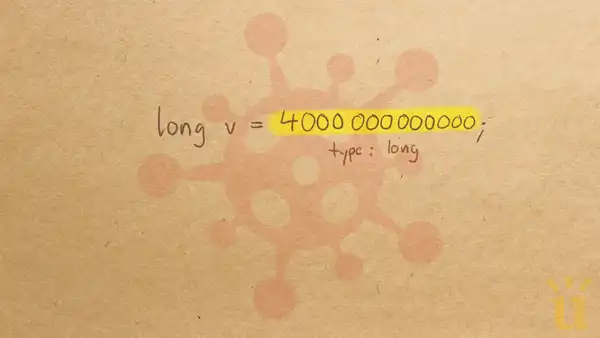 long v = 4000 000000000;
type: long
u